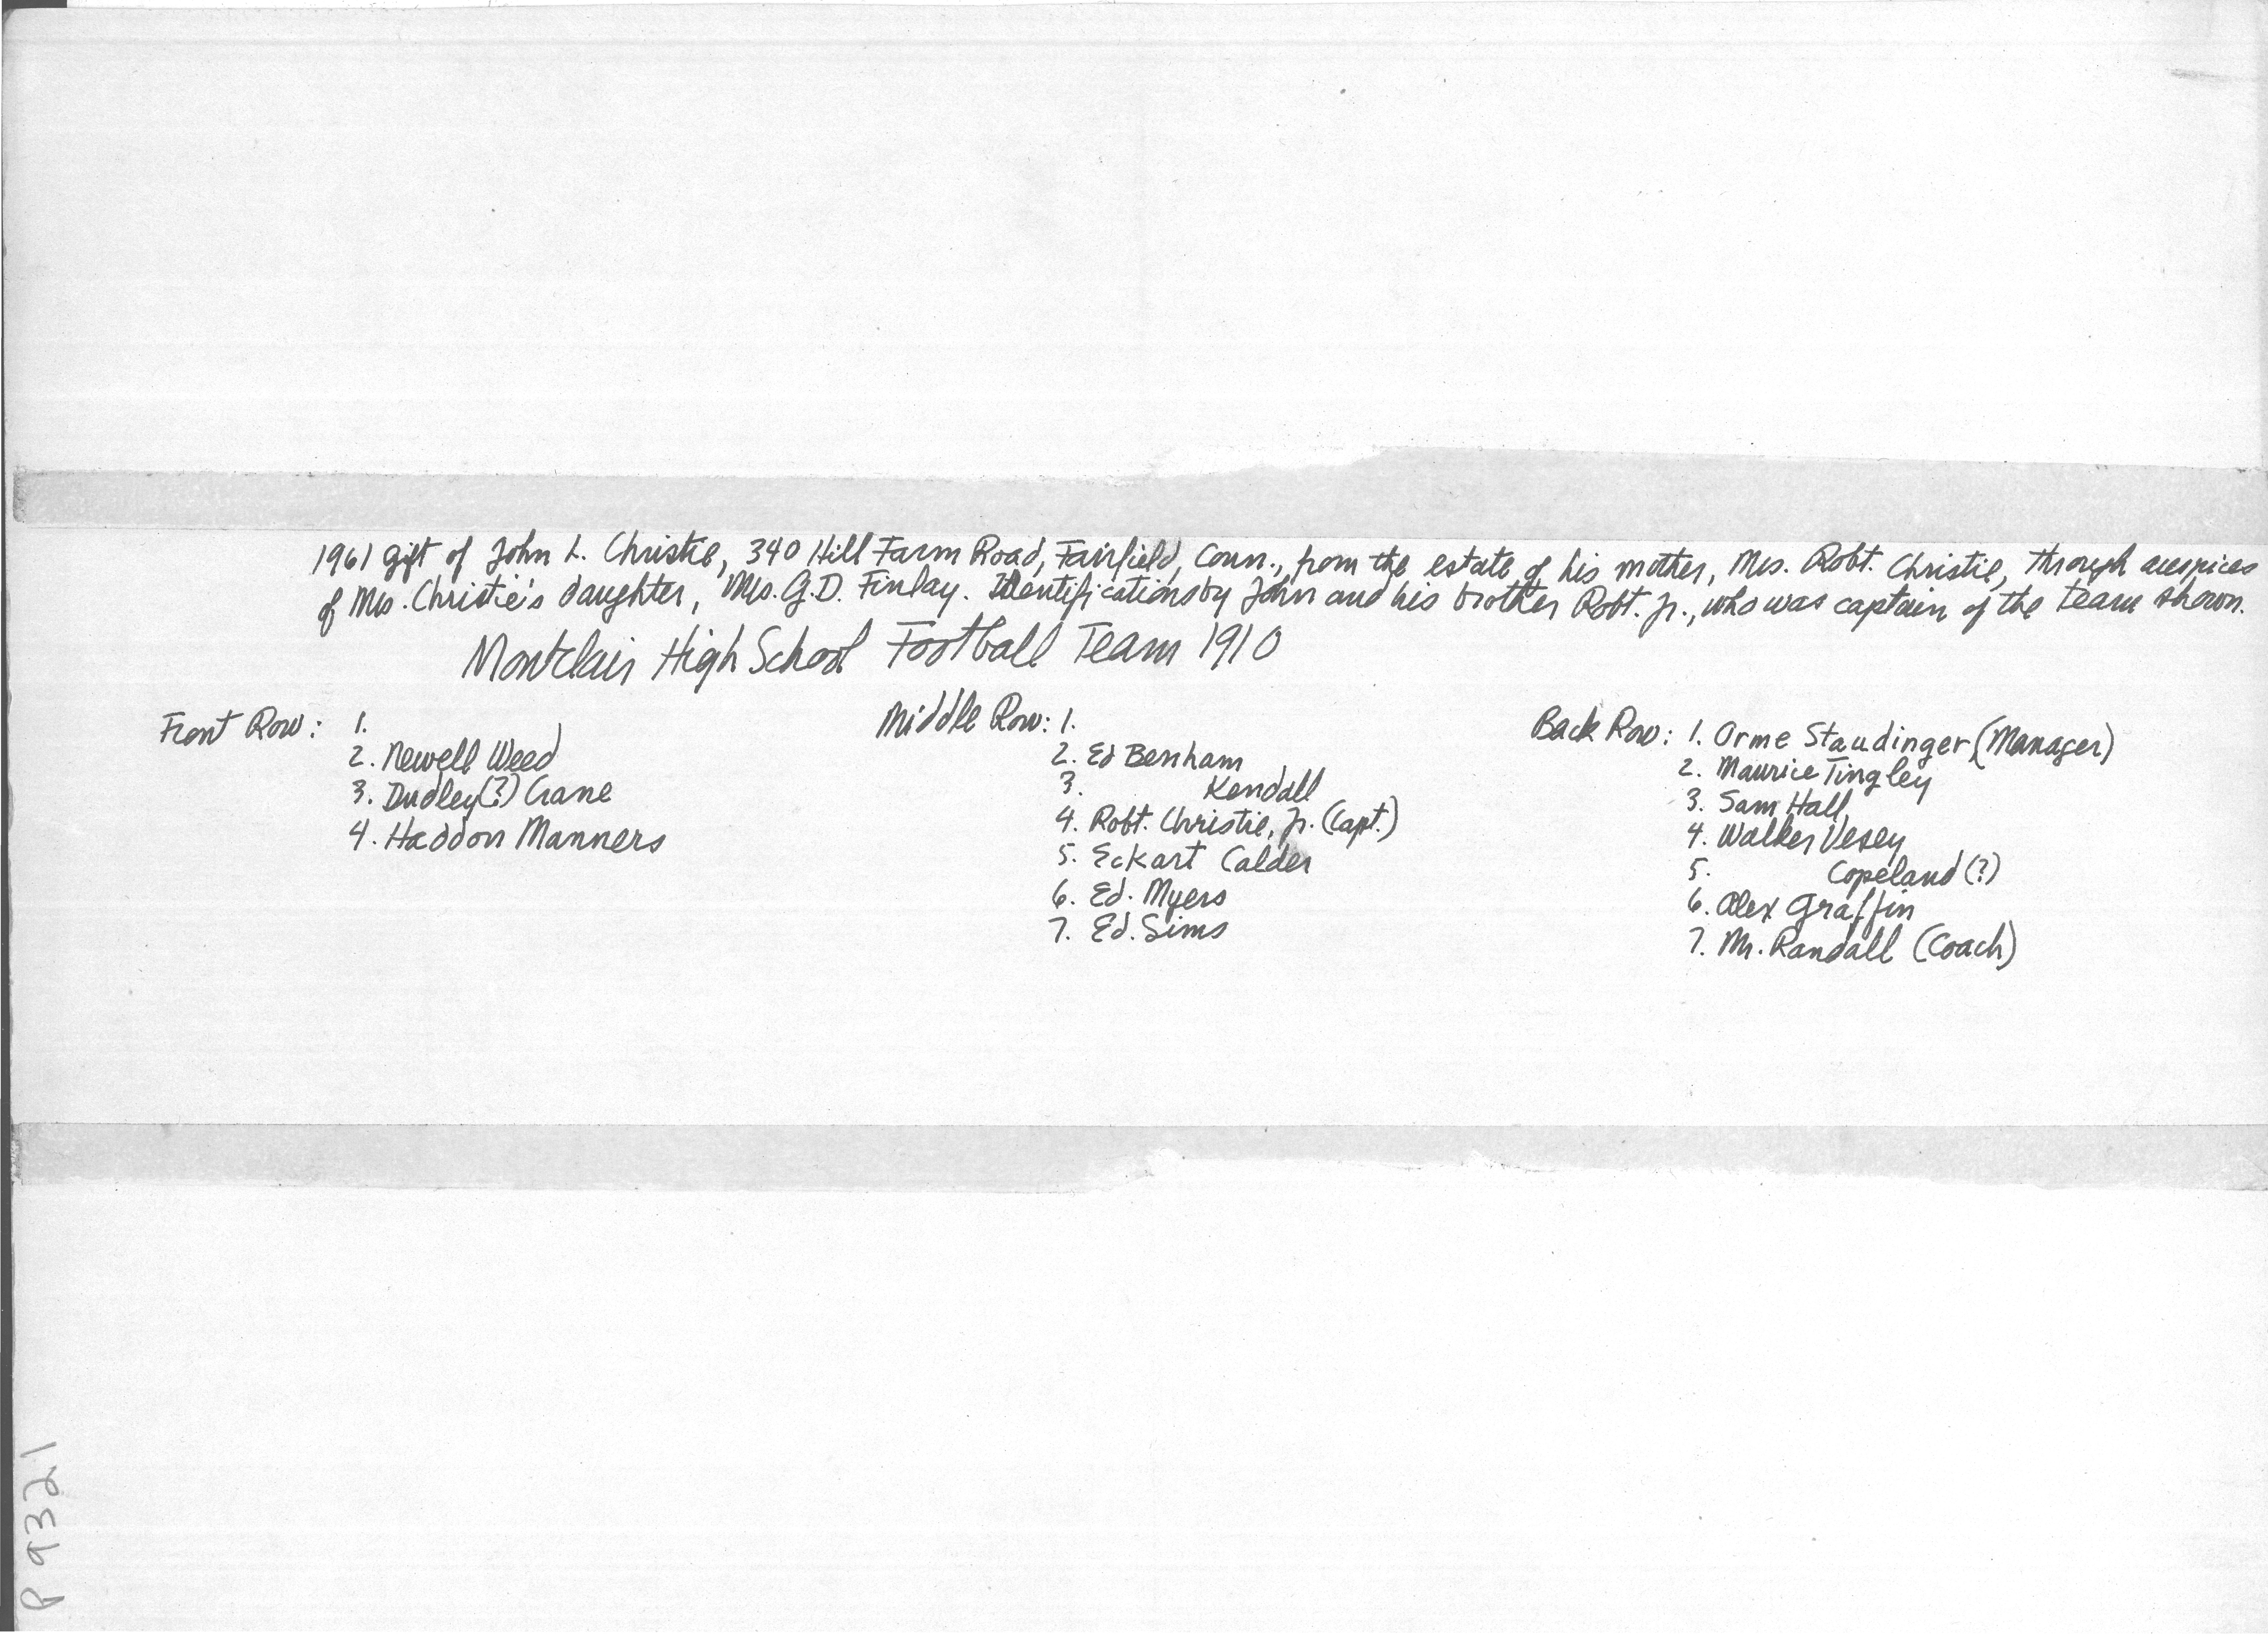 1961 gift of John L. Christie, 340 Hill Farm Road, Fairfield, Conn., from the estate of his mother, Mrs. Robt. Christie, through auspices
of Mrs. Christie's daughter, Mrs. G.D. Finlay. Identifications by John and his brother Robt. Jr., who was captain of the team shown.
Montclair High School Football Team 1910
Front Row: 1.
2. Newell Weed
3. Dudley(?) Crane
4. Haddon Manners
Middle Row: 1.
2. Ed Benham
3. Kendall
4. Robt. Christie, Jr. (Capt.)
5. Eckart Calder
6. Ed. Myers
7. Ed. Sims
Back Row: 1. Orme Staudinger (Manager)
2. Maurice Tingley
3. Sam Hall
4. Walker Vesey
5. Copeland (?)
6. Alex Graffin
7. Mr. Randall (Coach)
P 9321